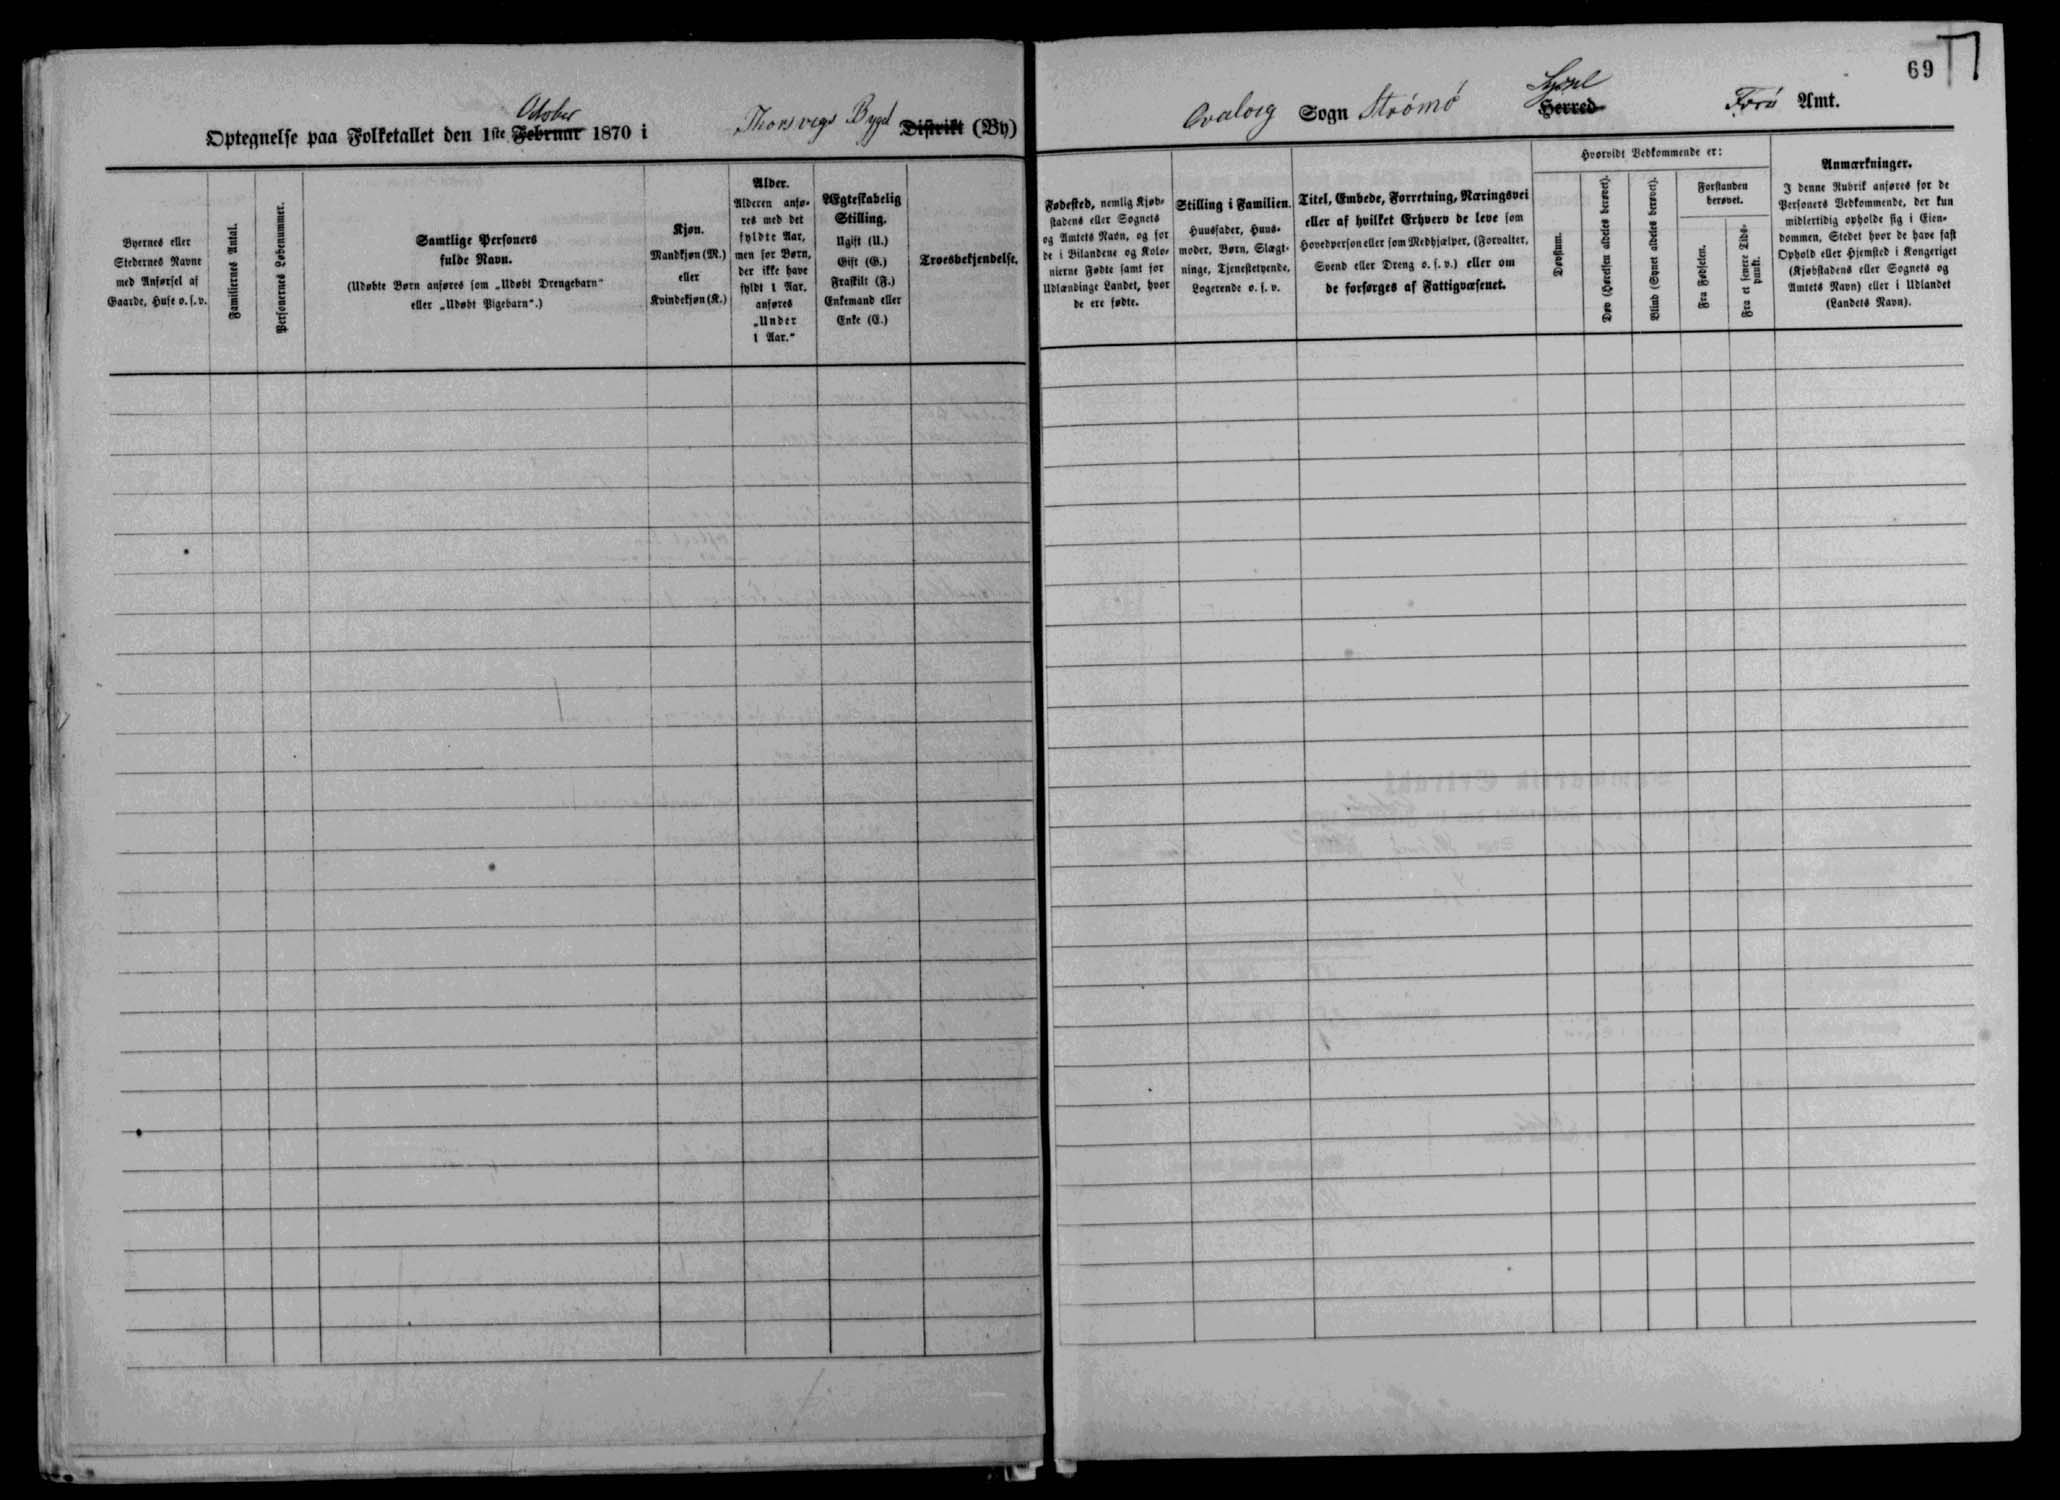 69
October
Optegnelse paa Folketallet den 1ste Februar 1870 i Thorsvegs Bygd Distrikt (By)
Syssel
Qvalvig Sogn Strömö Herred Färö Amt.
Byernes eller
Stedernes Navne
med Anførsel af
Gaarde, Huse o. s. v.
Familiernes Antal.
Personernes Løbenummer.
Samtlige Personers
fulde Navn.
(Udøbte Børn anføres som „Udøbt Drengebarn“
eller „Udøbt Pigebarn“.)
Kjøn.
Mandkjøn (M.)
eller
Kvindekjøn (K.)
Alder.
Alderen anfø-
res med det
fyldte Aar,
men for Børn,
der ikke have
fyldt 1 Aar,
anføres
„Under
1 Aar.“
Ægteskabelig
Stilling.
Ugift (U.)
Gift (G.)
Fraskilt (F.)
Enkemand eller
Enke (E.)
Troesbekjendelse.
Fødested, nemlig Kjøb-
stadens eller Sognets
og Amtets Navn, og for
de i Bilandene og Kolo-
nierne Fødte samt for
Udlændinge Landet, hvor
de ere fødte.
Stilling i Familien.
Huusfader, Huus-
moder, Børn, Slægt-
ninge, Tjenestetyende,
Logerende o. s. v.
Titel, Embede, Forretning, Næringsvei
eller af hvilket Erhverv de leve som
Hovedperson eller som Medhjælper, (Forvalter,
Svend eller Dreng o. s. v.) eller om
de forsørges af Fattigvæsenet.
Hvorvidt Vedkommende er:
Døvstum.
Døv (Hørelsen aldeles berøvet).
Blind (Synet aldeles berøvet).
Forstanden
berøvet.
Fra Fødselen.
Fra et senere Tids-
punkt.
Anmærkninger.
I denne Rubrik anføres for de
Personers Vedkommende, der kun
midlertidig opholde sig i Eien-
dommen, Stedet hvor de have fast
Ophold eller Hjemsted i Kongeriget
(Kjøbstadens eller Sognets og
Amtets Navn) eller i Udlandet
(Landets Navn).